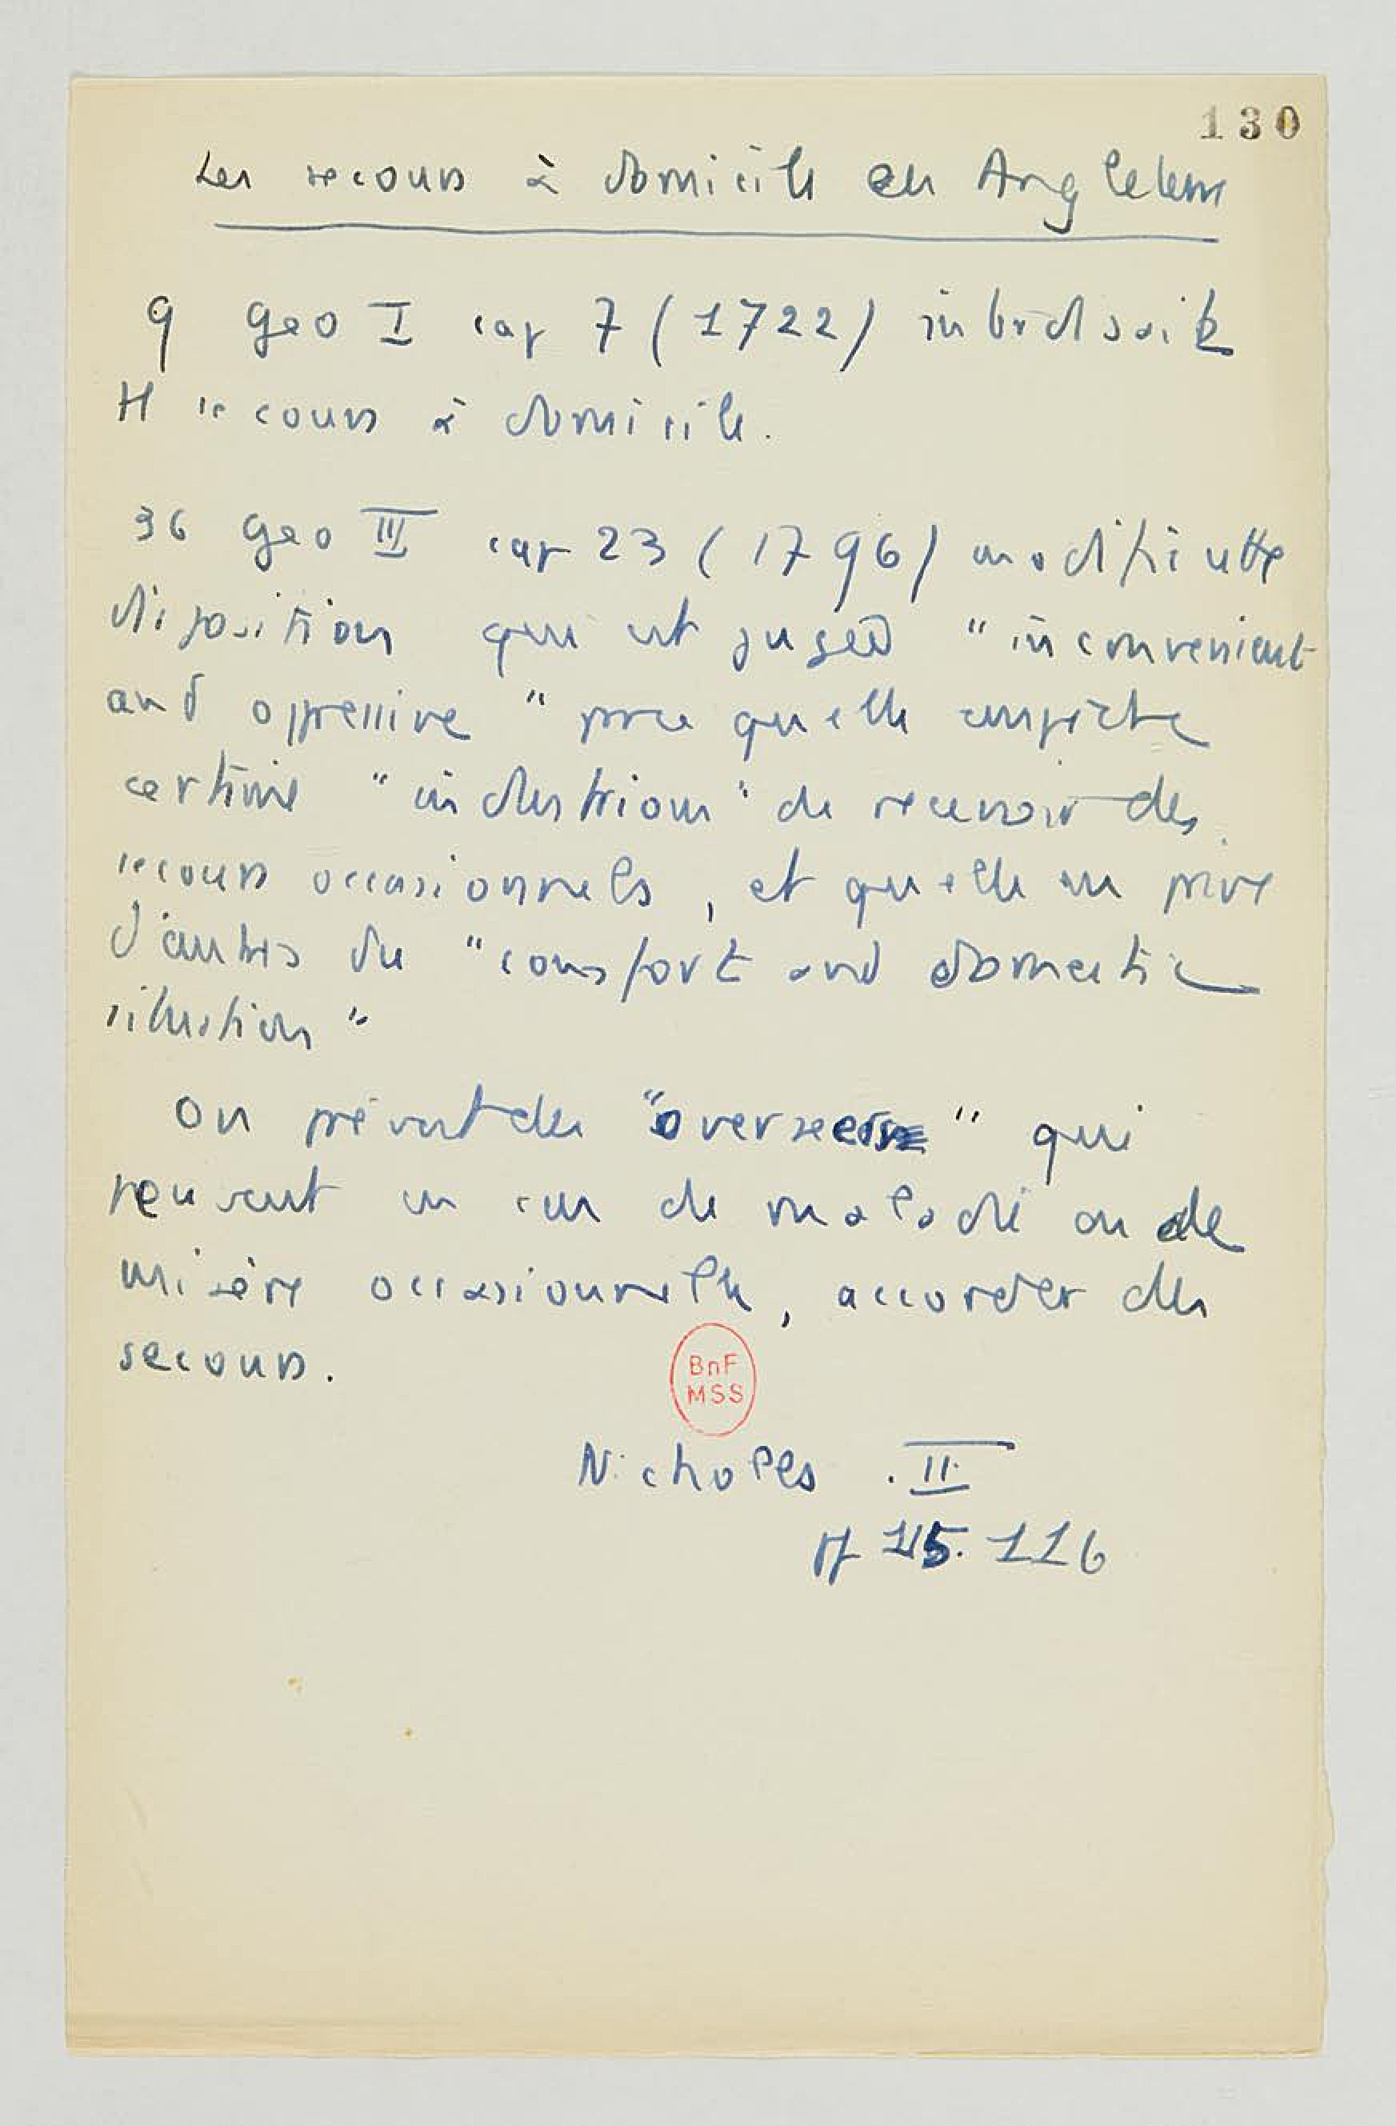 130
Les secours à domicile en Angleterre
9 Geo I cap 7 (1722) interdisait
secours à domicile.
36 Geo III cap 23 (1796) modifie cette
disposition qui est jugée "inconvenient
and oppressive" parce qu'elle empêche
certains "industrious" de recevoir des
secours occasionnels, et qu'elle en prive
d'autres du "comfort and domestic
situation"
On prévoit des "overseers" qui
peuvent en cas de maladie ou de
misère occasionnelle, accorder des
secours.
BnF
MSS
Nicholls II
115.116